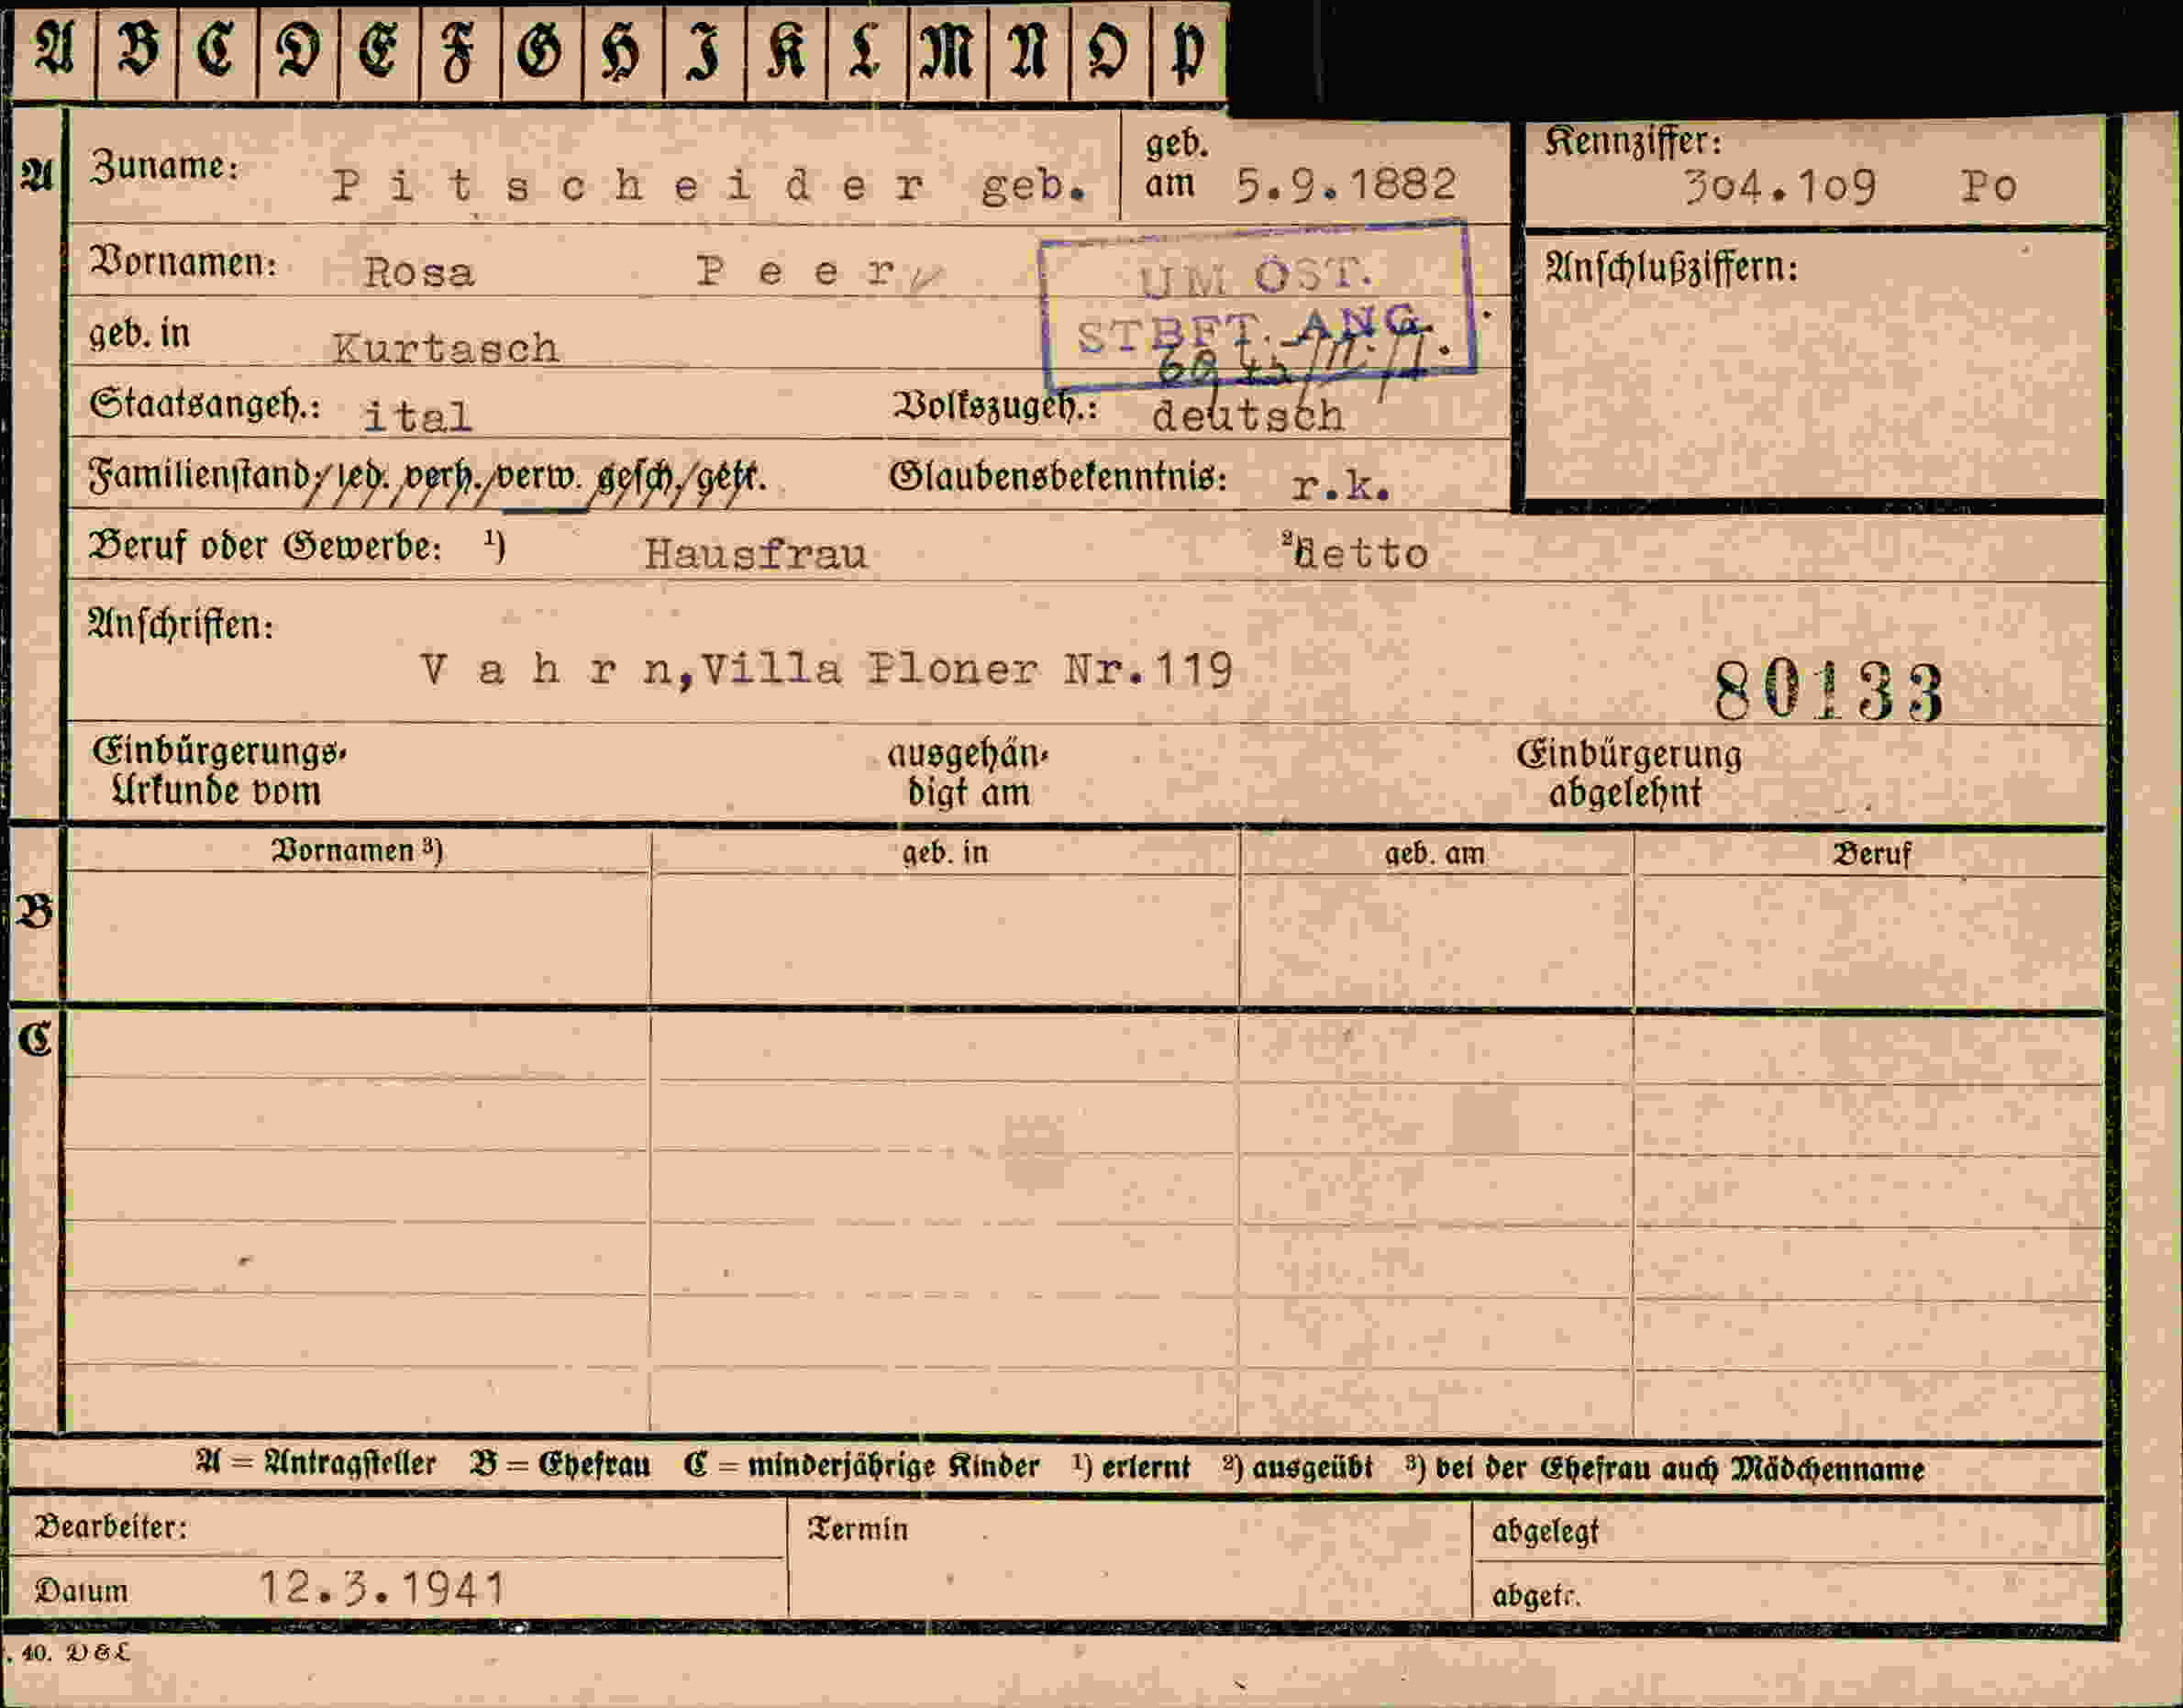 A B C D E F G H I K L M N O P
A Zuname: Pitscheider geb. geb. am 5.9.1882 Kennziffer: 304.109 Po
Vornamen: Rosa Peer Anschlußziffern:
UM ÖST.
STBFT. ANG.
geb. in Kurtasch
Staatsangeh.: ital Volkszugeh.: deutsch
Familienstand: led. verh. verw. gesch. getr. Glaubensbekenntnis: r.k.
Beruf oder Gewerbe: ¹) Hausfrau ²) detto
Anschriften:
Vahrn, Villa Ploner Nr.119 80133
Einbürgerungs- ausgehän- Einbürgerung
Urkunde vom digt am abgelehnt
Vornamen ³) geb. in geb. am Beruf
B
C
A = Antragsteller B = Ehefrau C = minderjährige Kinder ¹) erlernt ²) ausgeübt ³) bei der Ehefrau auch Mädchenname
Bearbeiter: Termin abgelegt
Datum 12.3.1941 abgetr.
. 40. D & L